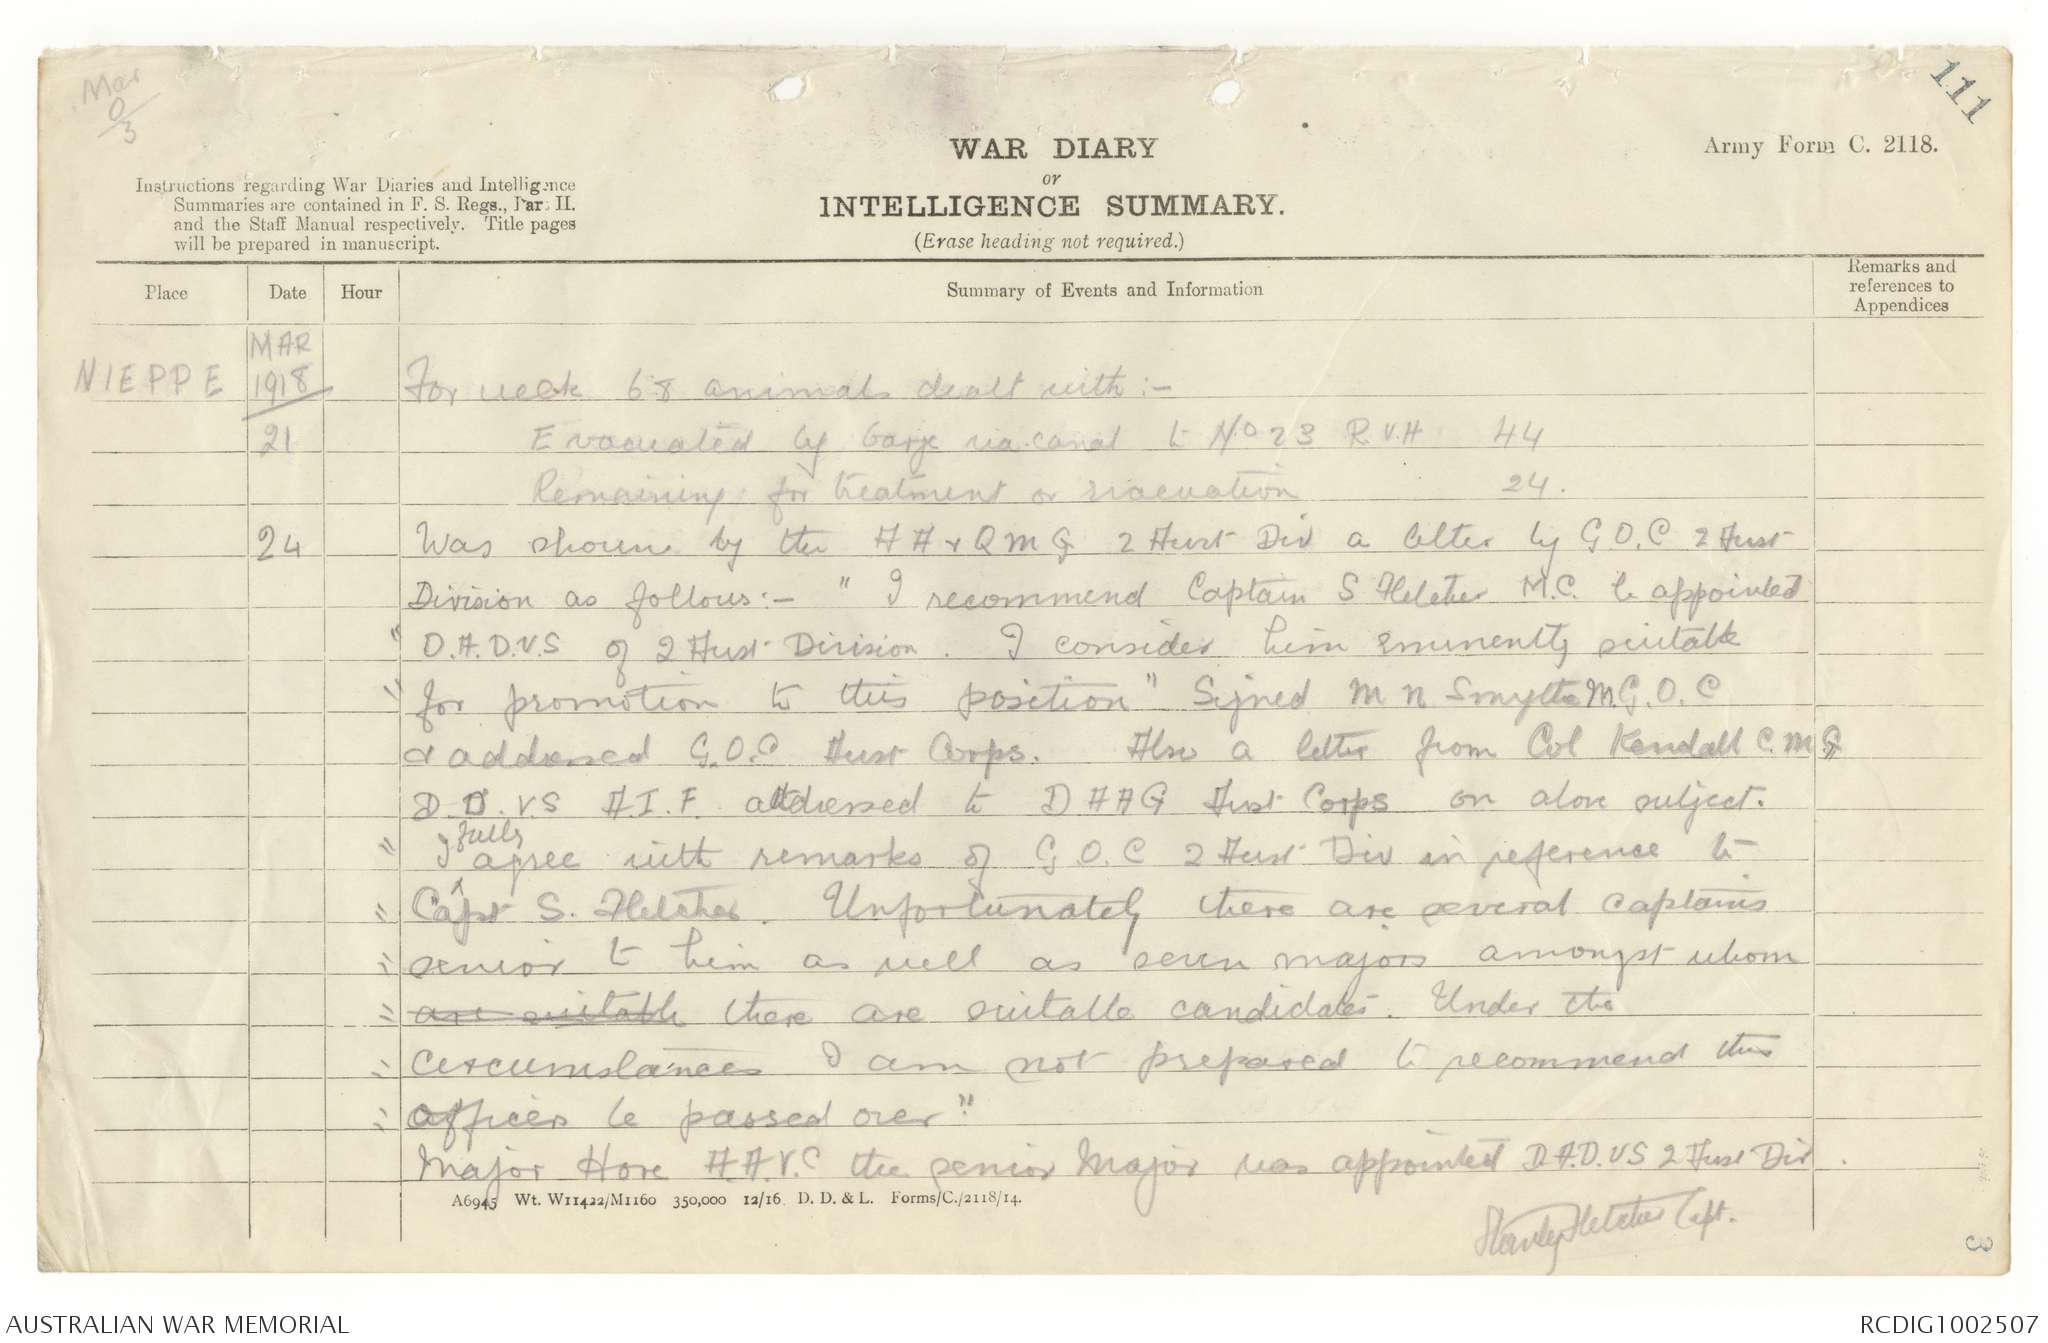 Mar
0/3
111
WAR DIARY
or
INTELLIGENCE SUMMARY.
(Erase heading not required.)
Army Form C. 2118.
Instructions regarding War Diaries and Intelligence
Summaries are contained in F. S. Regs., Part II.
and the Staff Manual respectively. Title pages
will be prepared in manuscript.
Place Date Hour Summary of Events and Information Remarks and references to Appendices
MAR
NIEPPE 1918 For week 68 animals dealt with :-
21 Evacuated by barge via canal to No 23 R.V.H 44
Remaining for treatment or evacuation 24.
24 Was shown by the AA & QMG 2 Aust Div a letter by G.O.C 2 Aust
Division as follows:- " I recommend Captain S Fletcher M.C. be appointed
" D.A.D.V.S of 2 Aust Division. I consider him eminently suitable
" for promotion to this position" Signed M N Smythe M.G.O.C
& addressed G.O.C Aust Corps. Also a letter from Col Kendall C.M.G
D.D.V.S A.I.F. addressed to DAAG Aust Corps on above subject.
" I fully agree with remarks of G.O.C 2 Aust Div in reference to
" Capt S. Fletcher. Unfortunately there are several captains
" senior to him as well as seven majors amongst whom
" are suitable there are suitable candidates. Under the
" circumstances I am not prepared to recommend this
" officer be passed over"
Major Hore A.A.V.C the senior Major was appointed D.A.D.V.S 2 Aust Div.
Stanley Fletcher Capt.
A6945 Wt. W11422/M1160 350,000 12/16 D. D. & L. Forms/C./2118/14.
3
AUSTRALIAN WAR MEMORIAL
RCDIG1002507